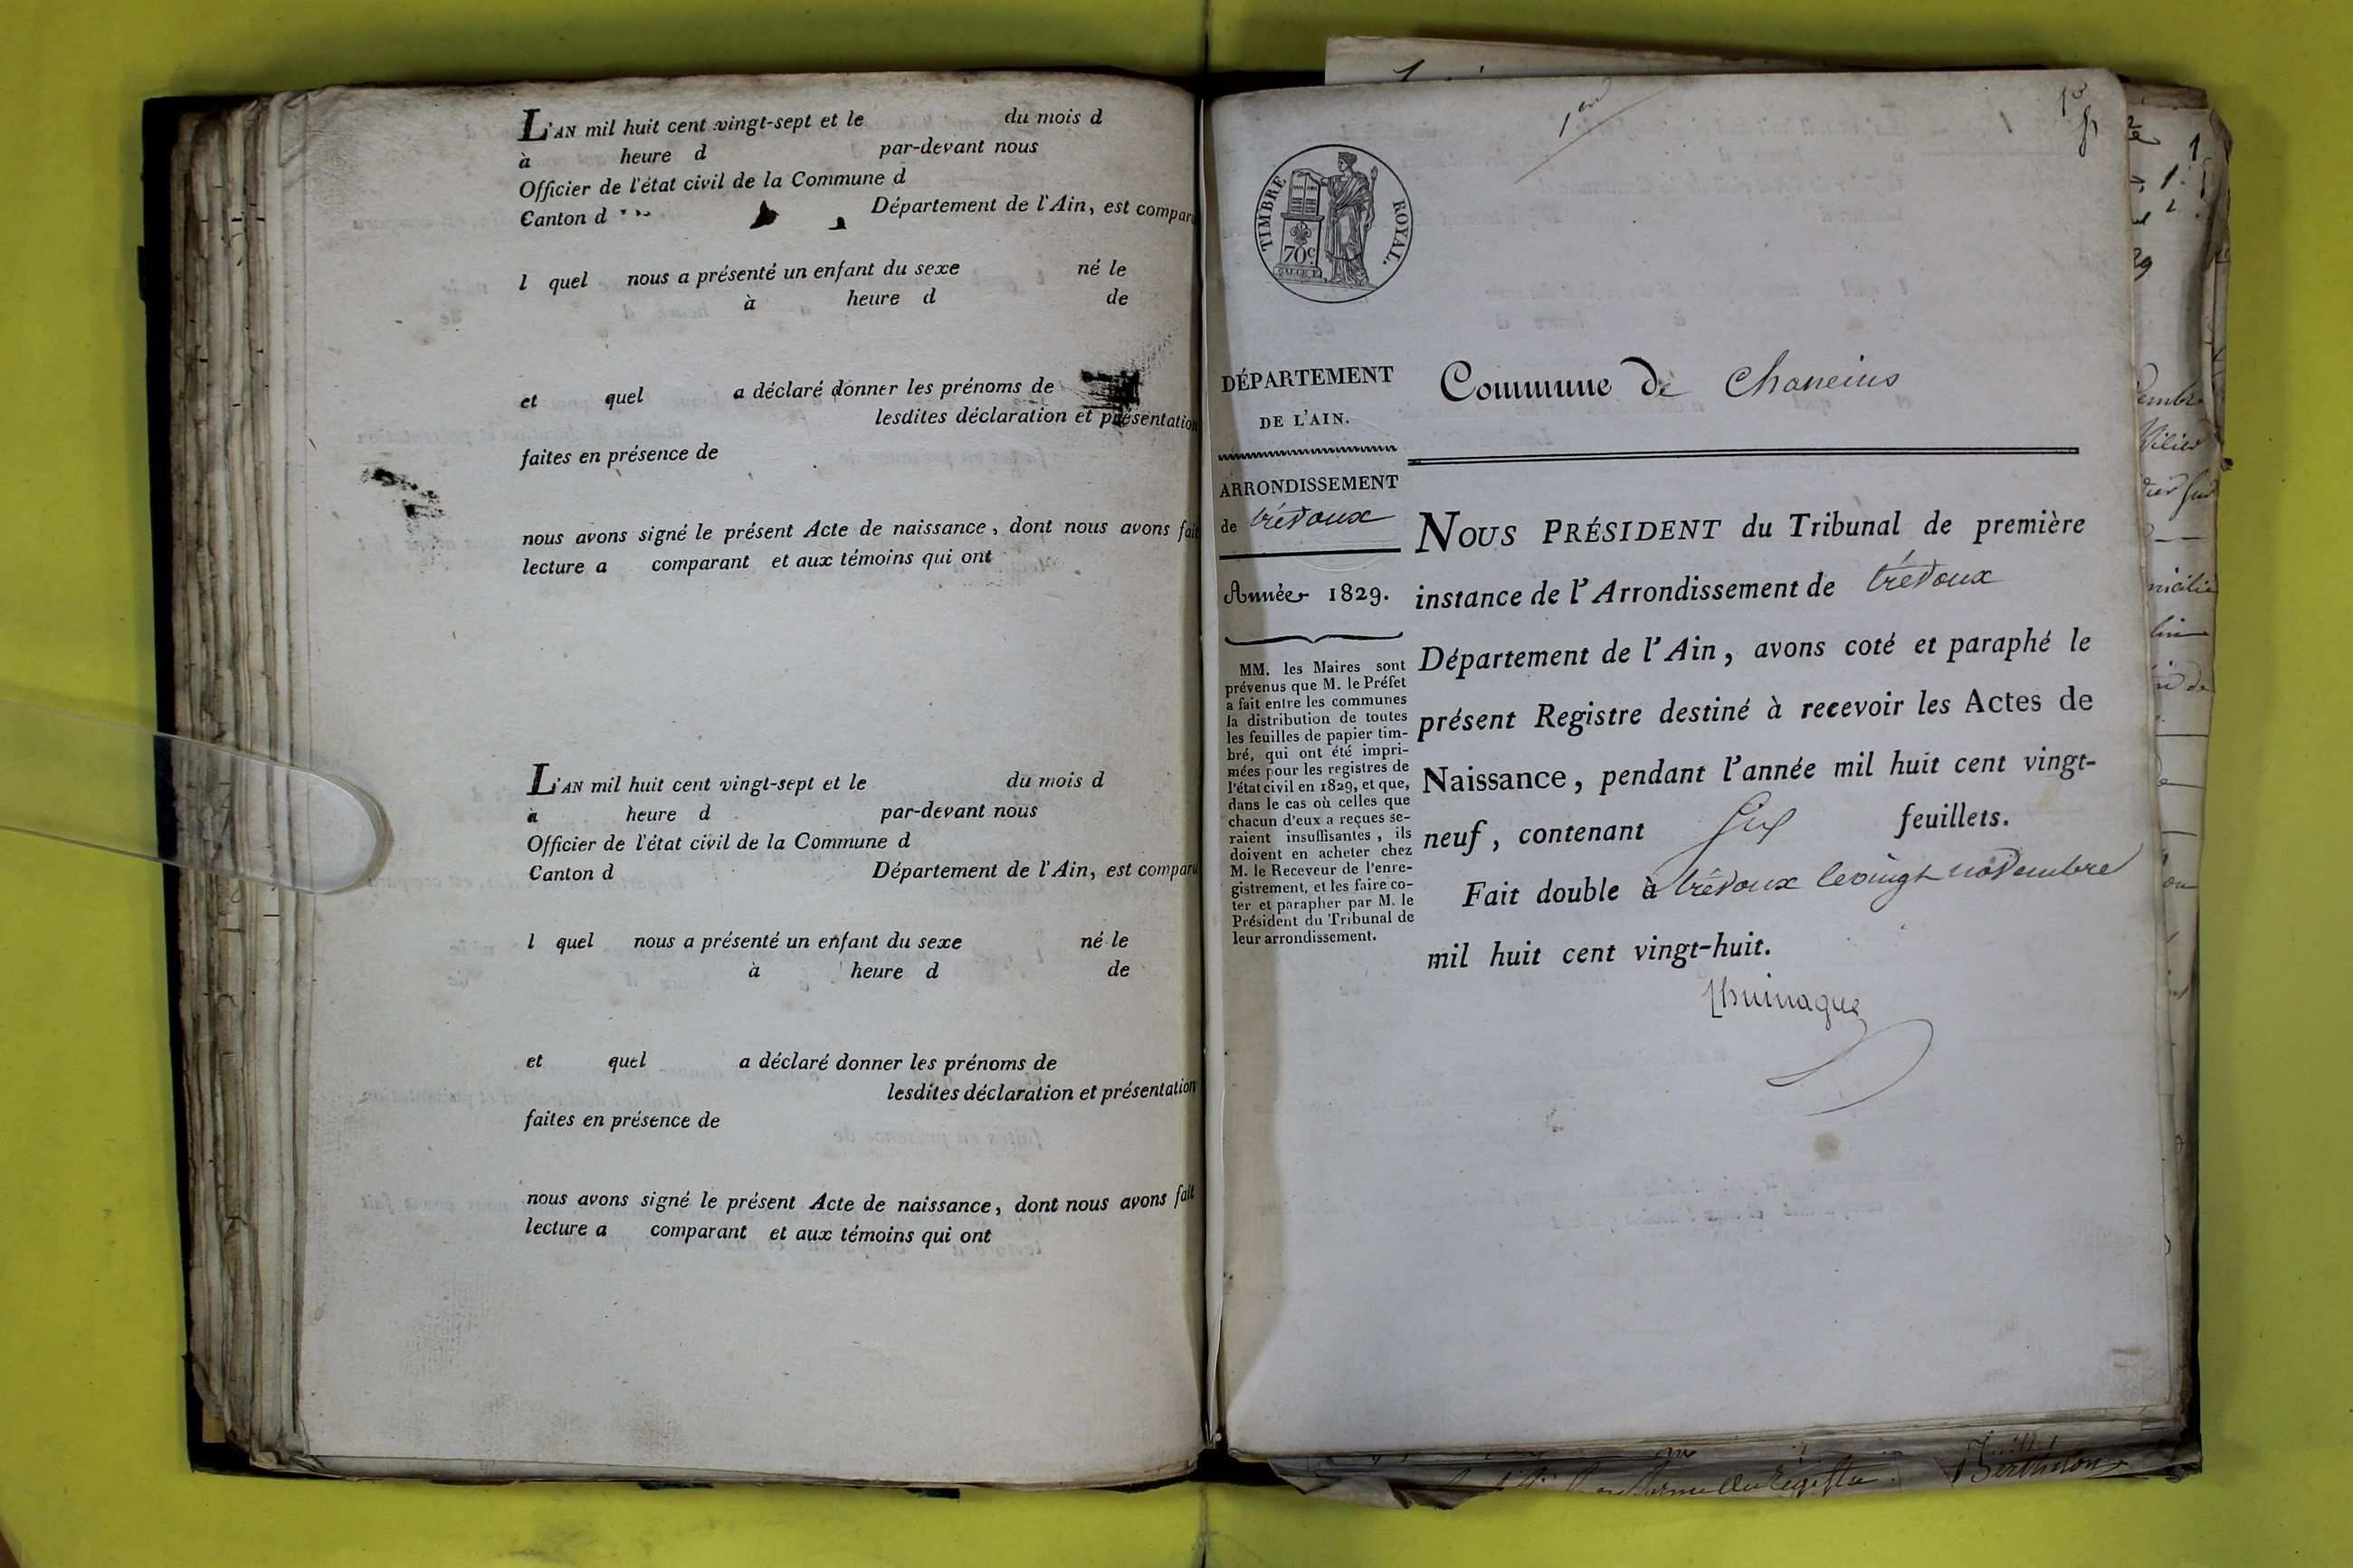 L'AN mil huit cent vingt-sept et le du mois d
à heure d par-devant nous
Officier de l'état civil de la Commune d
Canton d Département de l'Ain, est comparu
l quel nous a présenté un enfant du sexe né le
à heure d de
et quel a déclaré donner les prénoms de
lesdites déclaration et présentation
faites en présence de
nous avons signé le présent Acte de naissance, dont nous avons fait
lecture a comparant et aux témoins qui ont
L'AN mil huit cent vingt-sept et le du mois d
à heure d par-devant nous
Officier de l'état civil de la Commune d
Canton d Département de l'Ain, est comparu
l quel nous a présenté un enfant du sexe né le
à heure d de
et quel a déclaré donner les prénoms de
lesdites déclaration et présentation
faites en présence de
nous avons signé le présent Acte de naissance, dont nous avons fait
lecture a comparant et aux témoins qui ont
TIMBRE ROYAL.
70c.
DÉPARTEMENT
DE L'AIN.
ARRONDISSEMENT
de trévoux
Année 1829.
MM. les Maires sont
prévenus que M. le Préfet
a fait entre les communes
la distribution de toutes
les feuilles de papier tim-
bré, qui ont été impri-
mées pour les registres de
l'état civil en 1829, et que,
dans le cas où celles que
chacun d'eux a reçues se-
raient insuffisantes, ils
doivent en acheter chez
M. le Receveur de l'enre-
gistrement, et les faire co-
ter et parapher par M. le
Président du Tribunal de
leur arrondissement.
Commune de Chaneins
NOUS PRÉSIDENT du Tribunal de première
instance de l'Arrondissement de trévoux
Département de l'Ain, avons coté et paraphé le
présent Registre destiné à recevoir les Actes de
Naissance, pendant l'année mil huit cent vingt-
neuf, contenant six feuillets.
Fait double à trévoux le vingt novembre
mil huit cent vingt-huit.